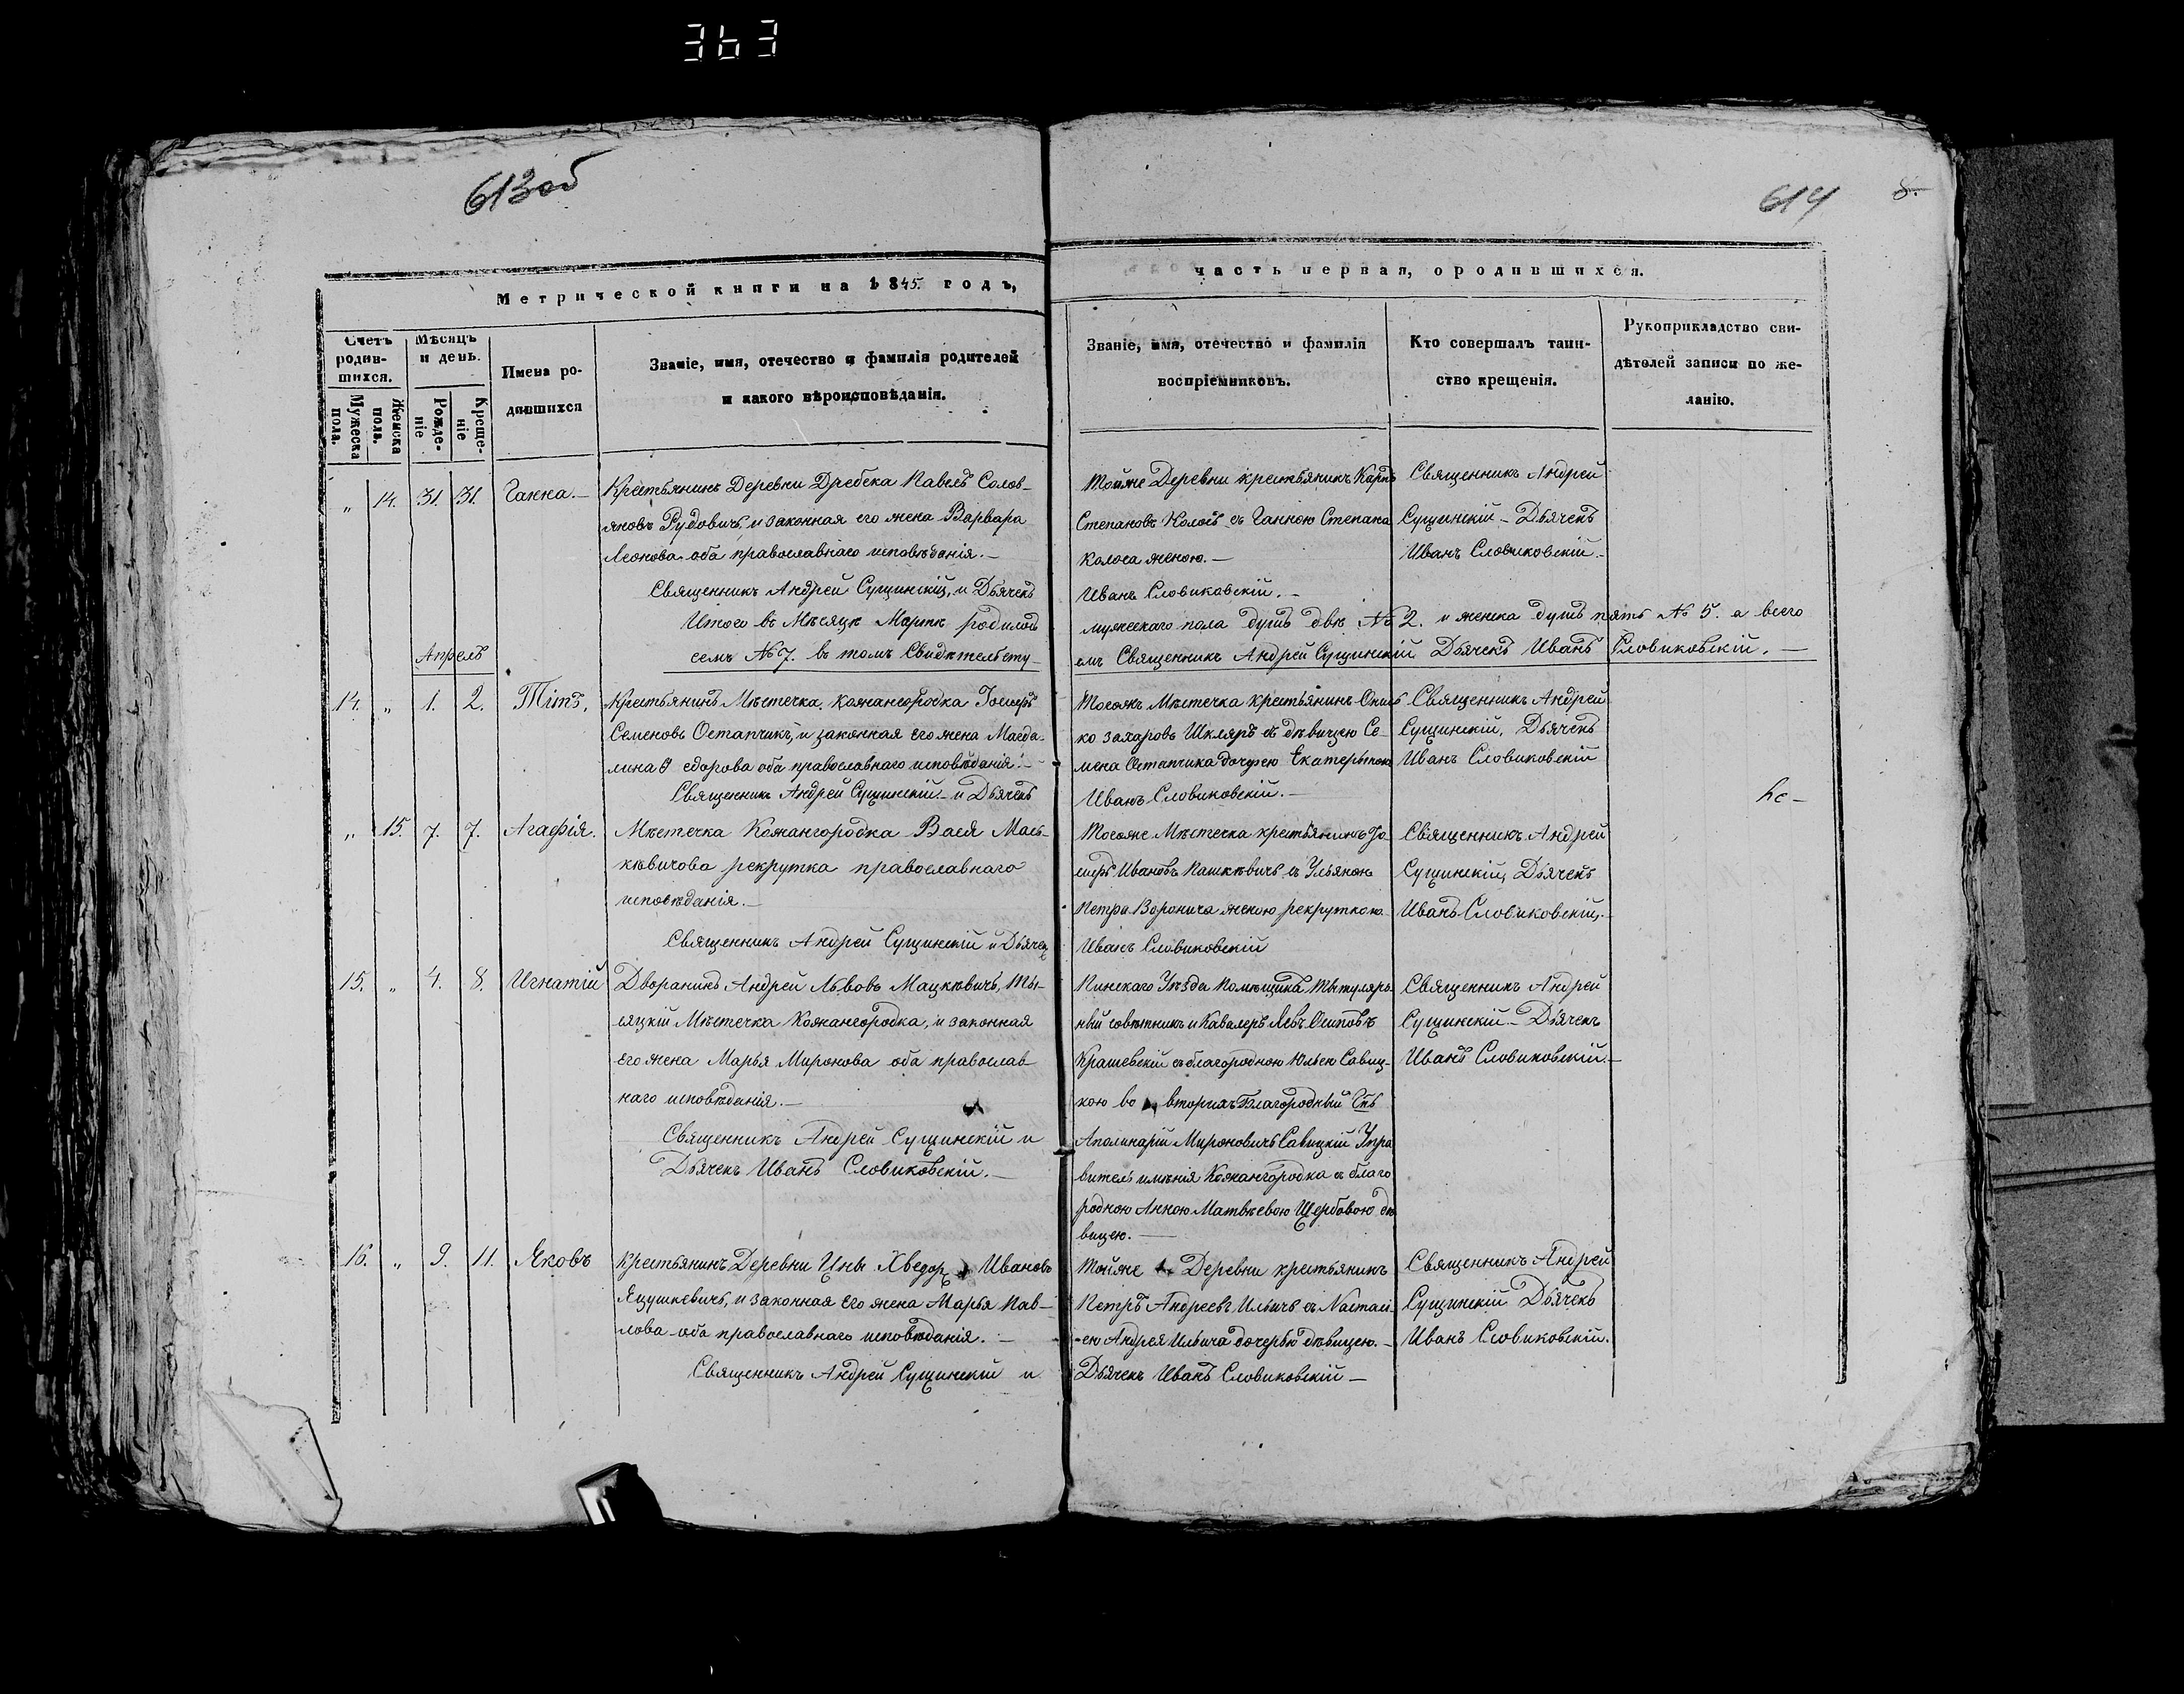 363
613об
614
8.
Метрической книги на 1845 годъ,
часть первая, о родившихся.
Счетъ родив-
шихся.
Мужеска пола.
Женска пола.
Мѣсяцъ и день.
Рожде-
ніе
Креще-
ніе
Имена ро-
дившихся
Званіе, имя, отечество и фамилія родителей
и какого вѣроисповѣданія.
Званіе, имя, отечество и фамилія
воспріемниковъ.
Кто совершалъ таин-
ство крещенія.
Рукоприкладство сви-
дѣтелей записи по же-
ланію.
„ 14. 31. 31. Ганна.—
Крестьянинъ Деревни Дребска Павелъ Солов-
яновъ Рудовичъ, и законная его жена Варвара
Леонова оба православнаго исповѣданія.—
Священникъ Андрей Сущинскій, и Дьячекъ
Тойже Деревни крестьянинъ Карпъ
Степановъ Колосъ съ Ганною Степана
Колоса женою.—
Иванъ Словиковскій.—
Священникъ Андрей
Сущинскій – Дьячекъ
Иванъ Словиковскій.
Итого въ Мѣсяцѣ Мартѣ родилось
мужескаго пола душъ двѣ № 2. и женска душъ пять № 5. а всего
семъ № 7. въ томъ Свидѣтельству-
емъ Священникъ Андрей Сущинскій Дьячекъ Иванъ Словиковскій.—
Апрель
14. „ 1. 2. Тітъ.
Крестьянинъ Мѣстечка Кожангородка
Семеновъ Остапчикъ, и законная его жена Магда-
лина Ѳедорова оба православнаго исповѣданія.—
Священникъ Андрей Сущинскій – и Дьячекъ
Тогожъ Мѣстечка крестьянинъ
ко Захаровъ Шкляръ съ дѣвицею Се-
мена Остапчика дочерью Екатериною
Иванъ Словиковскій.—
Священникъ Андрей
Сущинскій, Дьячекъ
Иванъ Словиковскій
„ 15. 7. 7. Агафія.
Мѣстечка Кожангородка Вася Мась-
кѣвичова рекрутка православнаго
исповѣданія.—
Священникъ Андрей Сущинскій и Дьячекъ
Тогоже Мѣстечка крестьянинъ
Ивановъ Пашкѣвичъ съ Ульяною
Петра Воронича женою рекруткою
Иванъ Словиковскій
Священникъ Андрей
Сущинскій, Дьячекъ
Иванъ Словиковскій.—
15. „ 4. 8. Игнатій
Дворанинъ Андрей Львовъ Мацкѣвичъ, Ты-
сяцкій Мѣстечка Кожангородка, и законная
его жена Марья Миронова оба православ
наго исповѣданія.—
Священникъ Андрей Сущинскій и
Дьячекъ Иванъ Словиковскій.—
Пинскаго Уѣзда Помѣщикъ, Тытуляр-
ный совѣтникъ и Кавалеръ Левъ Осиповъ
Крашевскій съ благородною Юлью Савиц-
кою во вторихъ Благородный
Аполинарій Мироновичъ Савицкій Упра
витель имѣнія Кожангородка съ благо
родною Анною Матвѣевою Щербовою дѣ
вицею.—
Священникъ Андрей
Сущинскій – Дьячекъ
Иванъ Словиковскій.—
16. „ 9. 11. Яковъ
Крестьянинъ Деревни Цны Хведор Ивановъ
Яцушкевичъ, и законная его жена Марья Пав-
лова оба православнаго исповѣданія.—
Священникъ Андрей Сущинскій и
Тойже Деревни крестьянинъ
Петръ Андреевъ Ильичъ съ Настасі-
ею Андрея Ильича дочерью дѣвицею.—
Дьячекъ Иванъ Словиковскій—
Священникъ Андрей
Сущинскій Дьячекъ
Иванъ Словиковскій.